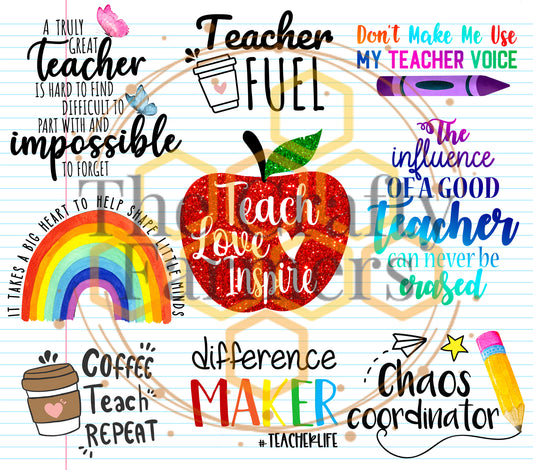 A TRULY
GREAT
Teacher
IS HARD TO FIND
DIFFICULT TO
PART WITH AND
impossible
TO FORGET
Teacher
FUEL
Don't Make Me Use
MY TEACHER VOICE
IT TAKES A BIG HEART TO HELP SHAPE LITTLE MINDS
Teach
Love
Inspire
The
influence
OF A GOOD
teacher
can never be
erased
COFFEE
Teach
REPEAT
difference
MAKER
#TEACHERLIFE
Chaos
coordinator